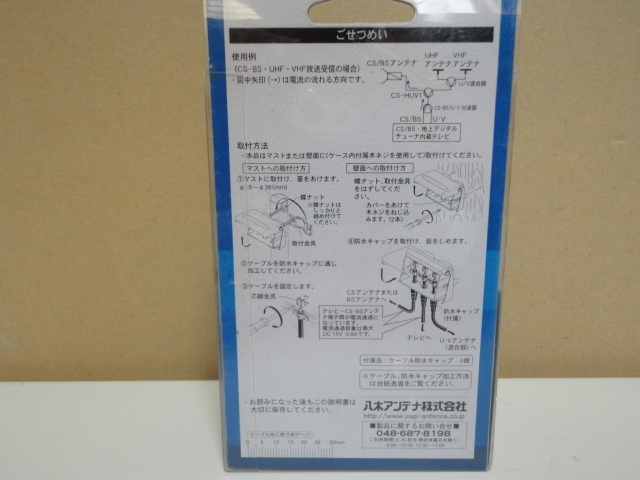 ごせつめい
使用例
(CS・BS・UHF・VHF放送受信の場合)
・図中矢印(→)は電流の流れる方向です。
CS/BSアンテナ
UHF アンテナ
VHF アンテナ
U/V混合器
CS-HUV1
CS・BS/U・V 分波器
CS/BS
U・V
CS/BS・地上デジタル
チューナ内蔵テレビ
取付方法
・本品はマストまたは壁面に(ケース内付属木ネジを使用して)取付けてください。
マストへの取付け方
①マストに取付け、蓋をあけます。
φ16〜φ38(mm)
蝶ナット
※蝶ナットは
しっかりと
締め付けて
ください。
取付金具
②ケーブルを防水キャップに通し
加工してください。
③ケーブルを固定します。
芯線金具
壁面への取付け方
蝶ナット、取付金具
をはずしてくだ
さい。
カバーをあけて
木ネジをねじ込
みます。(2本)
④防水キャップを取付け、蓋をしめます。
CSアンテナまたは
BSアンテナへ
テレビ−CS・BSアンテ
ナ端子間が電流通過に
なっています。
電流通過容量は最大
DC 15V 0.8Aです。
防水キャップ
(付属)
テレビへ
U・Vアンテナ
(混合器)へ
付属品:ケーブル防水キャップ 3個
※ケーブル、防水キャップ加工方法
は台紙表面をご覧ください。
・お読みになった後もこの説明書は
大切に保存してください。
八木アンテナ株式会社
http://www.yagi-antenna.co.jp
■製品に関するお問い合せ■
048-687-8198
ケーブル加工用寸法ゲージ
0 5 10 15 20 25 30mm